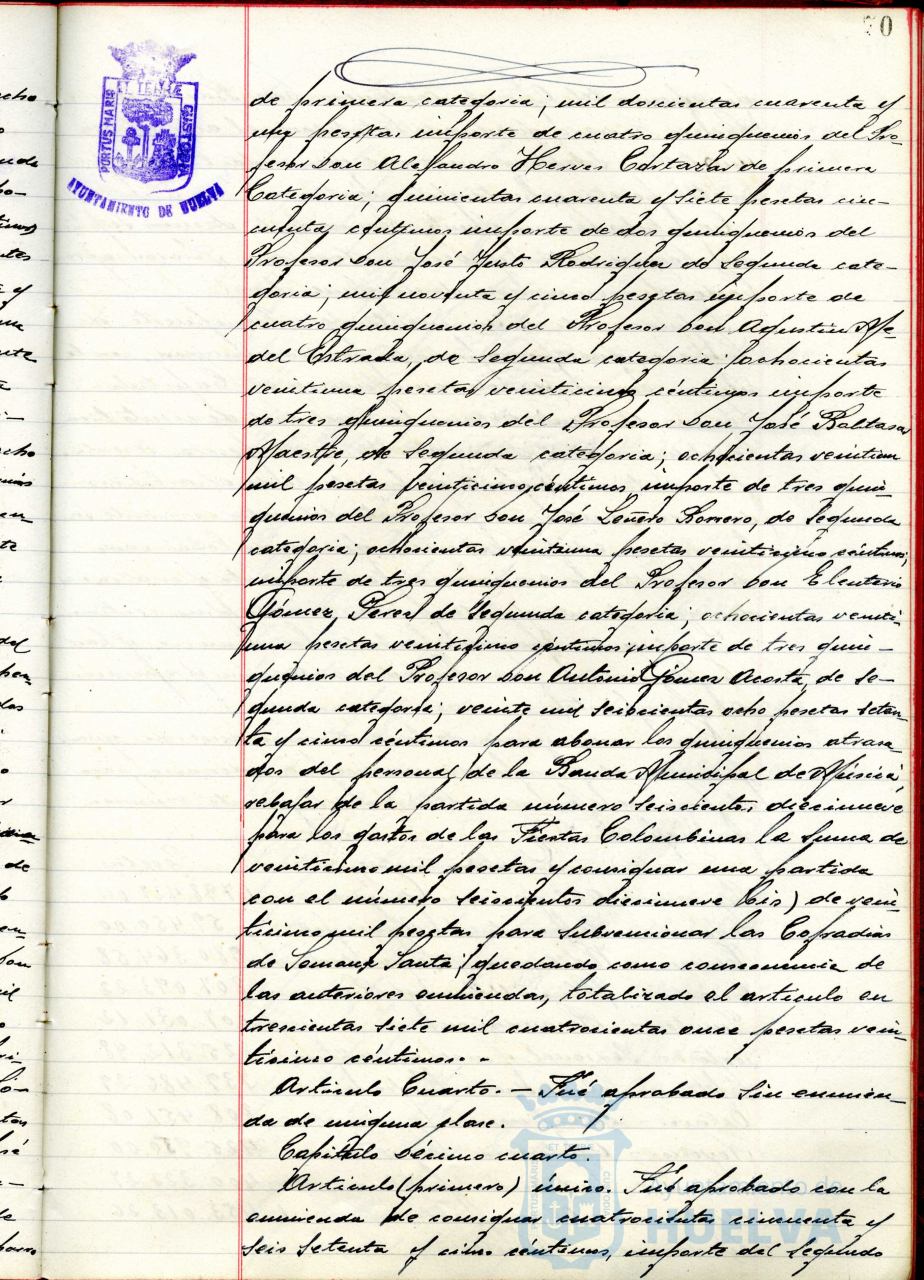 70
PORTUS MARIS ET TERRÆ CUSTODIA
AYUNTAMIENTO DE HUELVA
de primera categoria; mil doscientas cuarenta y
una pesetas importe de cuatro quinquenios del Pro-
fesor Don Alejandro Herves Cortazar de primera
Categoria; quinientas cuarenta y siete pesetas cin-
cuenta centimos importe de dos quinquenios del
Profesor Don José Justo Rodriguez de Segunda cate-
goria; mil noventa y cinco pesetas importe de
cuatro quinquenios del Profesor Don Agustin Me-
del Estrada, de Segunda categoria; ochocientas
veintiuna pesetas veinticinco céntimos importe
de tres quinquenios del Profesor Don José Baltasar
Maestre, de Segunda categoria; ochocientas veintiun
mil pesetas veinticinco céntimos, importe de tres quin-
quenios del Profesor Don José Leñero Borrero, de Segunda
categoria; ochocientas veintiuna pesetas veinticinco céntimos,
importe de tres quinquenios del Profesor Don Eleuterio
Gómez Perez de Segunda categoria; ochocientas veinti-
una pesetas veinticinco centimos importe de tres quin-
quenios del Profesor Don Antonio Gómez Acosta, de Se-
gunda categoria; veinte mil seiscientas ocho pesetas seten-
ta y cinco céntimos para abonar los quinquenios atrasa
dos del personal de la Banda Municipal de Música
rebajar de la partida número seiscientos diecinueve
para los gastos de las Fiestas Colombinas la suma de
veinticinco mil pesetas y consignar una partida
con el número seiscientos diecinueve bis) de vein-
ticinco mil pesetas para subvencionar las Cofradias
de Semana Santa; quedando como consecuencia de
las anteriores enmiendas, totalizado el articulo en
trescientas siete mil cuatrocientas once pesetas vein-
ticinco céntimos. -
Articulo Cuarto. - Fué aprobado sin enmien-
da de ninguna clase.
Capitulo Décimo cuarto.
Articulo (primero) único. Fué aprobado con la
enmienda de consignar cuatrocientas cincuenta y
seis setenta y cinco céntimos, importe del segundo
Ayuntamiento de
HUELVA